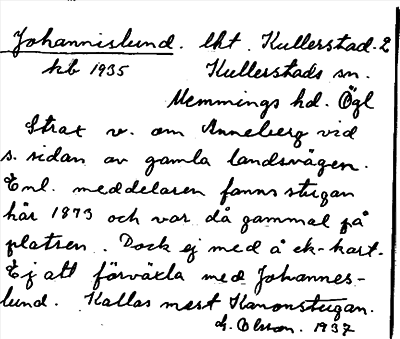 Johannislund. lht. Kullerstad. 2
kb 1935 Kullerstads sn.
Memmings hd. Ögl
Strax v. om Anneberg vid
s. sidan av gamla landsvägen.
Enl. meddelaren fanns stugan
här 1873 och var då gammal på
platsen. Dock ej med å ek-kart.
Ej att förväxla med Johannes-
lund. Kallas mest Kanonstugan.
Olsson. 1937